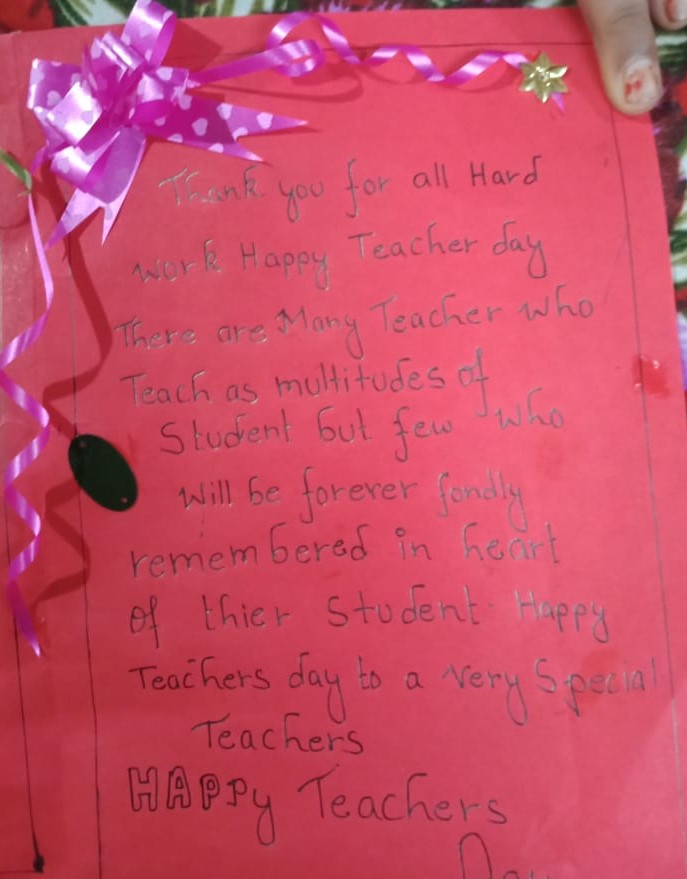 Thank you for all Hard
work Happy Teacher day
There are Many Teacher who
Teach as multitudes of
Student but few who
Will be forever fondly
remembered in heart
of thier Student. Happy
Teachers day to a very Special
Teachers
HAPPy Teachers
Day